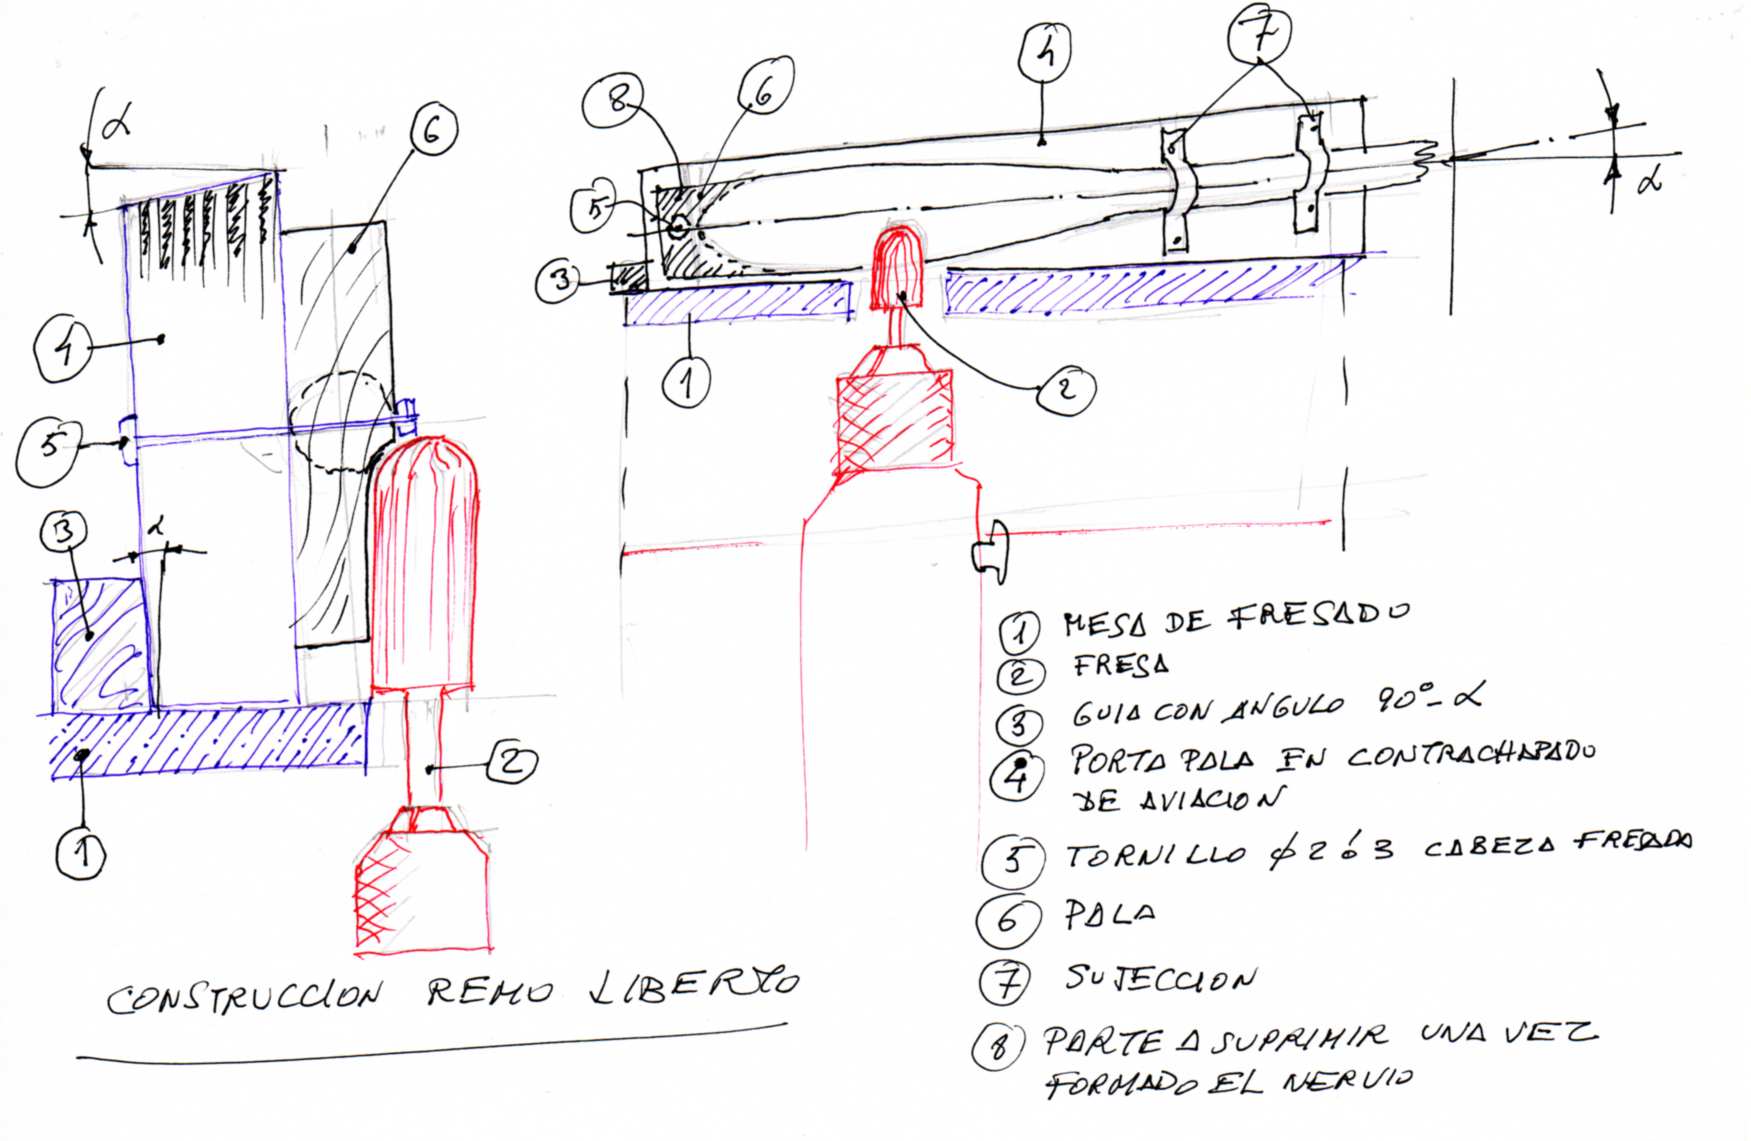 α
6
4
5
3
α
1
2
8
6
4
7
5
3
1
2
α
1 MESA DE FRESADO
2 FRESA
3 GUIA CON ANGULO 90º-α
4 PORTA PALA EN CONTRACHAPADO
DE AVIACION
5 TORNILLO φ 2 ó 3 CABEZA FRESADA
6 PALA
7 SUJECCION
8 PARTE A SUPRIMIR UNA VEZ
FORMADO EL NERVIO
CONSTRUCCION REMO LIBERTO